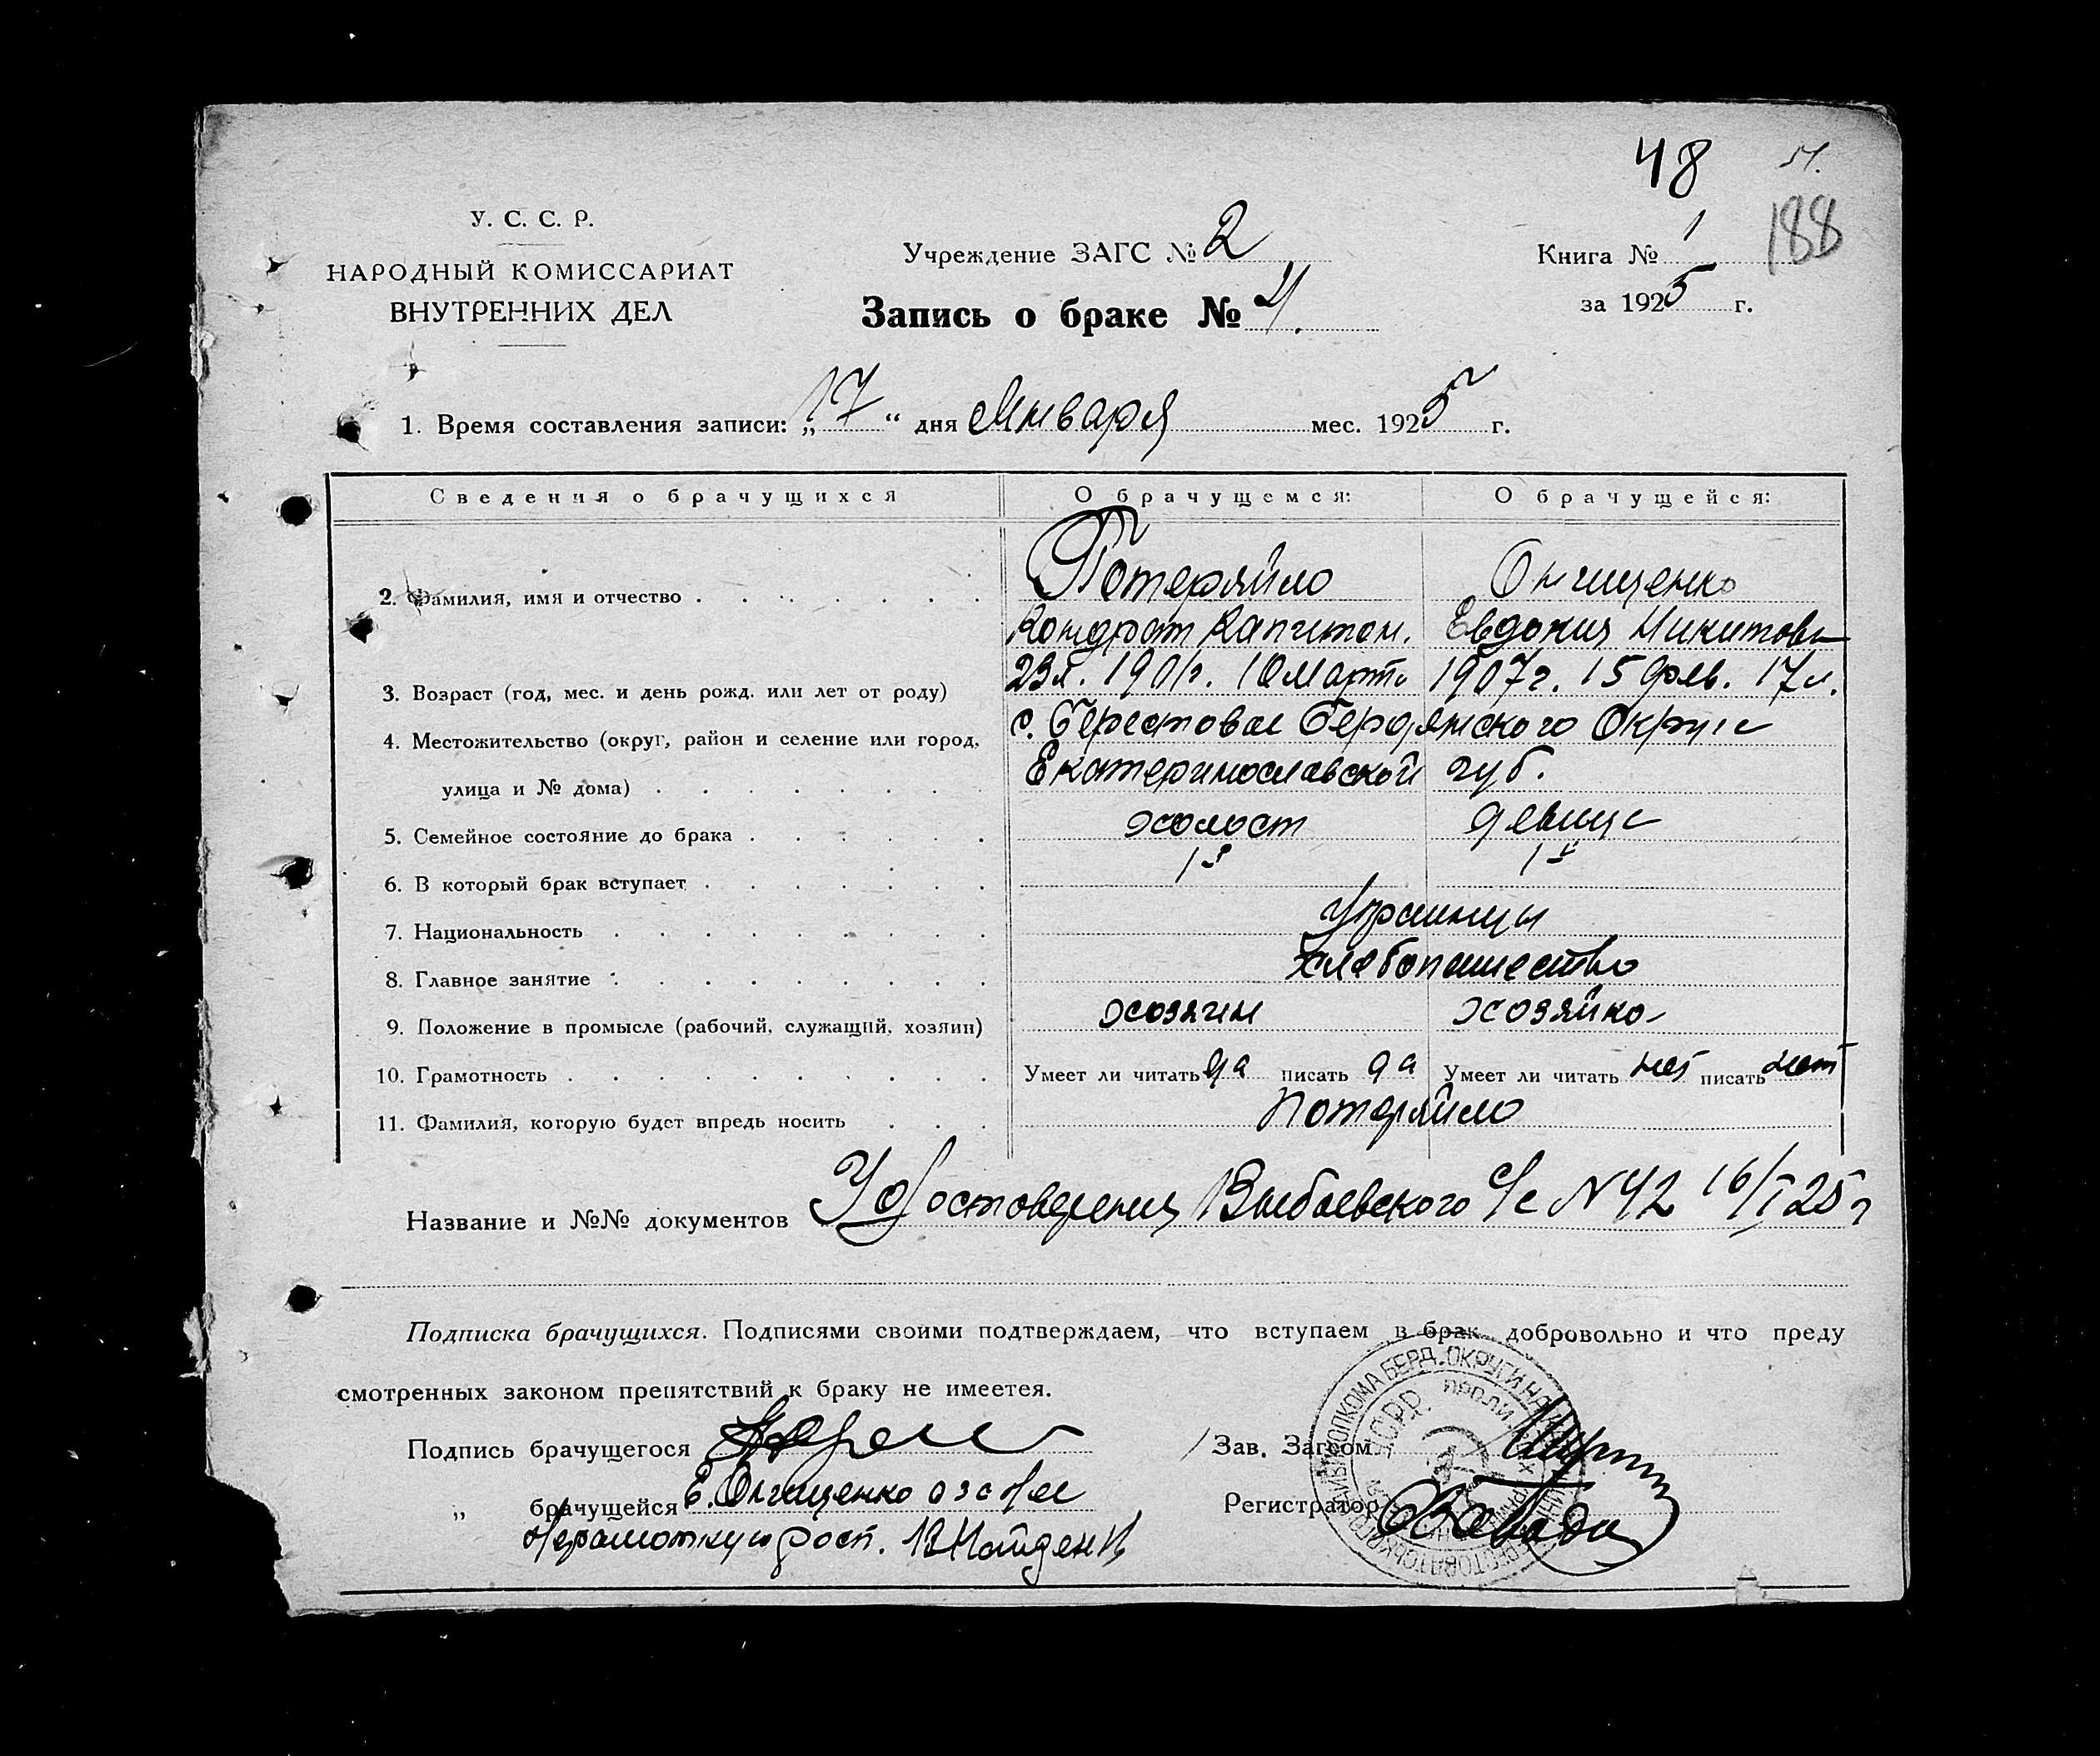 48 51.
188
У. С. С. Р.
НАРОДНЫЙ КОМИССАРИАТ
ВНУТРЕННИХ ДЕЛ
Учреждение ЗАГС № 2
Книга № 1
Запись о браке № 4.
за 1925 г.
1. Время составления записи: „17“ дня Января мес. 1925 г.
Сведения о брачущихся О брачущемся: О брачущейся:
2. Фамилия, имя и отчество Потеряйло Онищенко
Кондрат Капитон. Евдокия Никитовн
3. Возраст (год, мес. и день рожд. или лет от роду) 23л. 1901г. 10 марта 1907г. 15 фев. 17л.
4. Местожительство (округ, район и селение или город, с. Берестовое Бердянского Округа
улица и № дома) Екатеринославской губ.
5. Семейное состояние до брака холост девица
6. В который брак вступает 1й 1й
7. Национальность Украинцы
8. Главное занятие хлебопашество
9. Положение в промысле (рабочий, служащий, хозяин) хозяин хозяйка
10. Грамотность Умеет ли читать да писать да Умеет ли читать нет писать нет
11. Фамилия, которую будет впредь носить Потеряйло
Название и №№ документов Удостоверения с/с N 42 16/I 25 г
Подписка брачущихся. Подписями своими подтверждаем, что вступаем в брак добровольно и что преду
смотренных законом препятствий к браку не имеетея.
Подпись брачущегося Зав. Загсом
„ брачущейся Е. Онищенко а за нее
Регистратор
неграмотную рост.
БЕРД. ОКРУГИ
У.С.Р.Р.